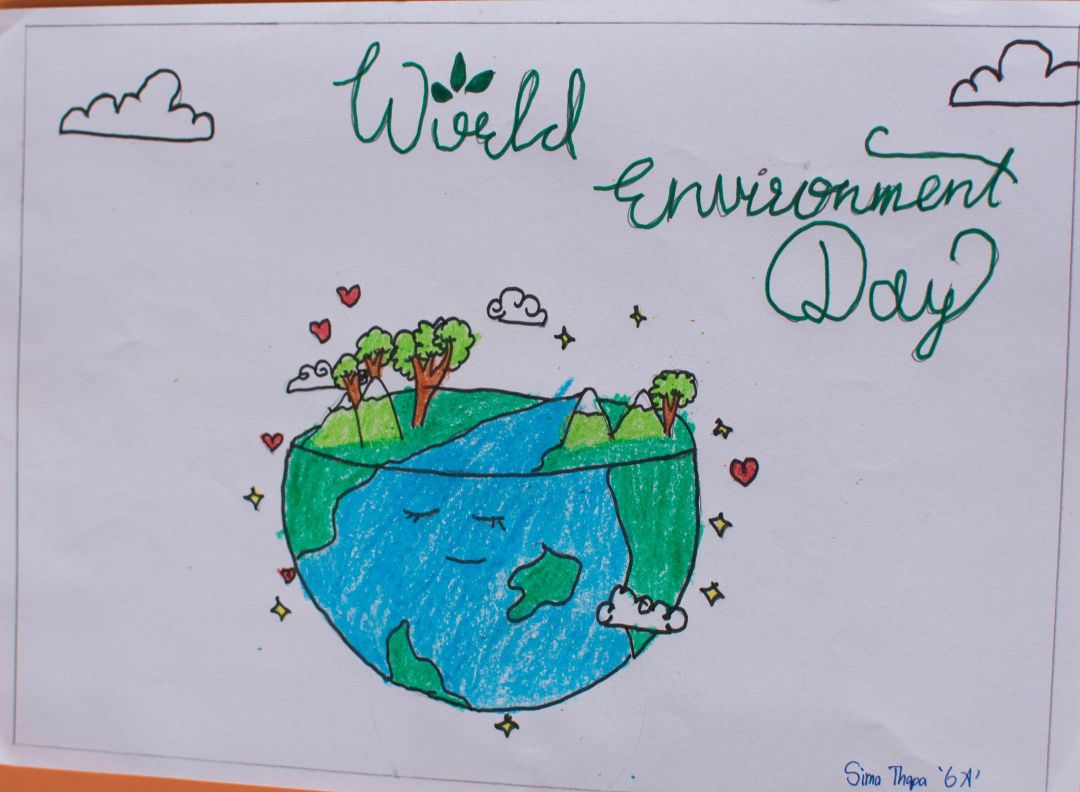 World
Environment
Day
Sima Thapa '6A'